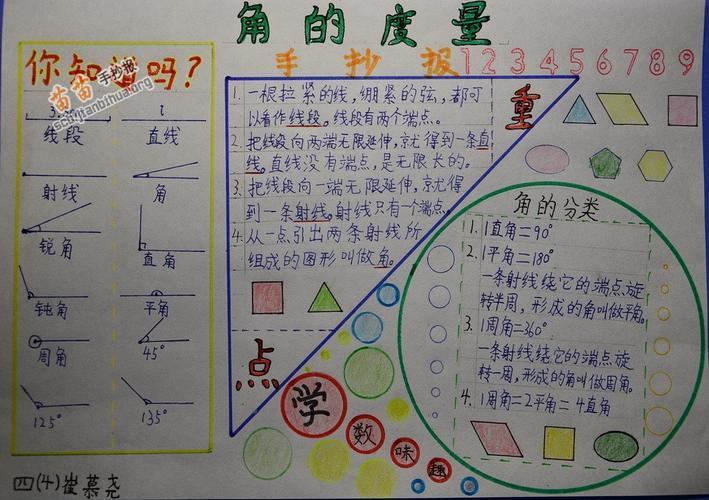 角的度量
手抄报
1 2 3 4 5 6 7 8 9
你知道吗?
苗苗手抄报
线段
直线
l
射线
角
锐角
直角
钝角
平角
周角
45°
125°
135°
1. 一根拉紧的线,绷紧的弦,都可
以看作线段。线段有两个端点。
2. 把线段向两端无限延伸,就得到一条直
线。直线没有端点,是无限长的。
3. 把线段向一端无限延伸,就得
到一条射线。射线只有个端点。
4. 从一点引出两条射线所
组成的图形叫做角。
重
点
角的分类
1. 1直角=90°
2. 1平角=180°
一条射线绕它的端点旋
转半周,形成的角叫做平角。
3. 1周角=360°
一条射线绕它的端点旋
转一周,形成的角叫做周角。
4. 1周角=2平角=4直角
学
数
味
趣
四(4)崔慕尧